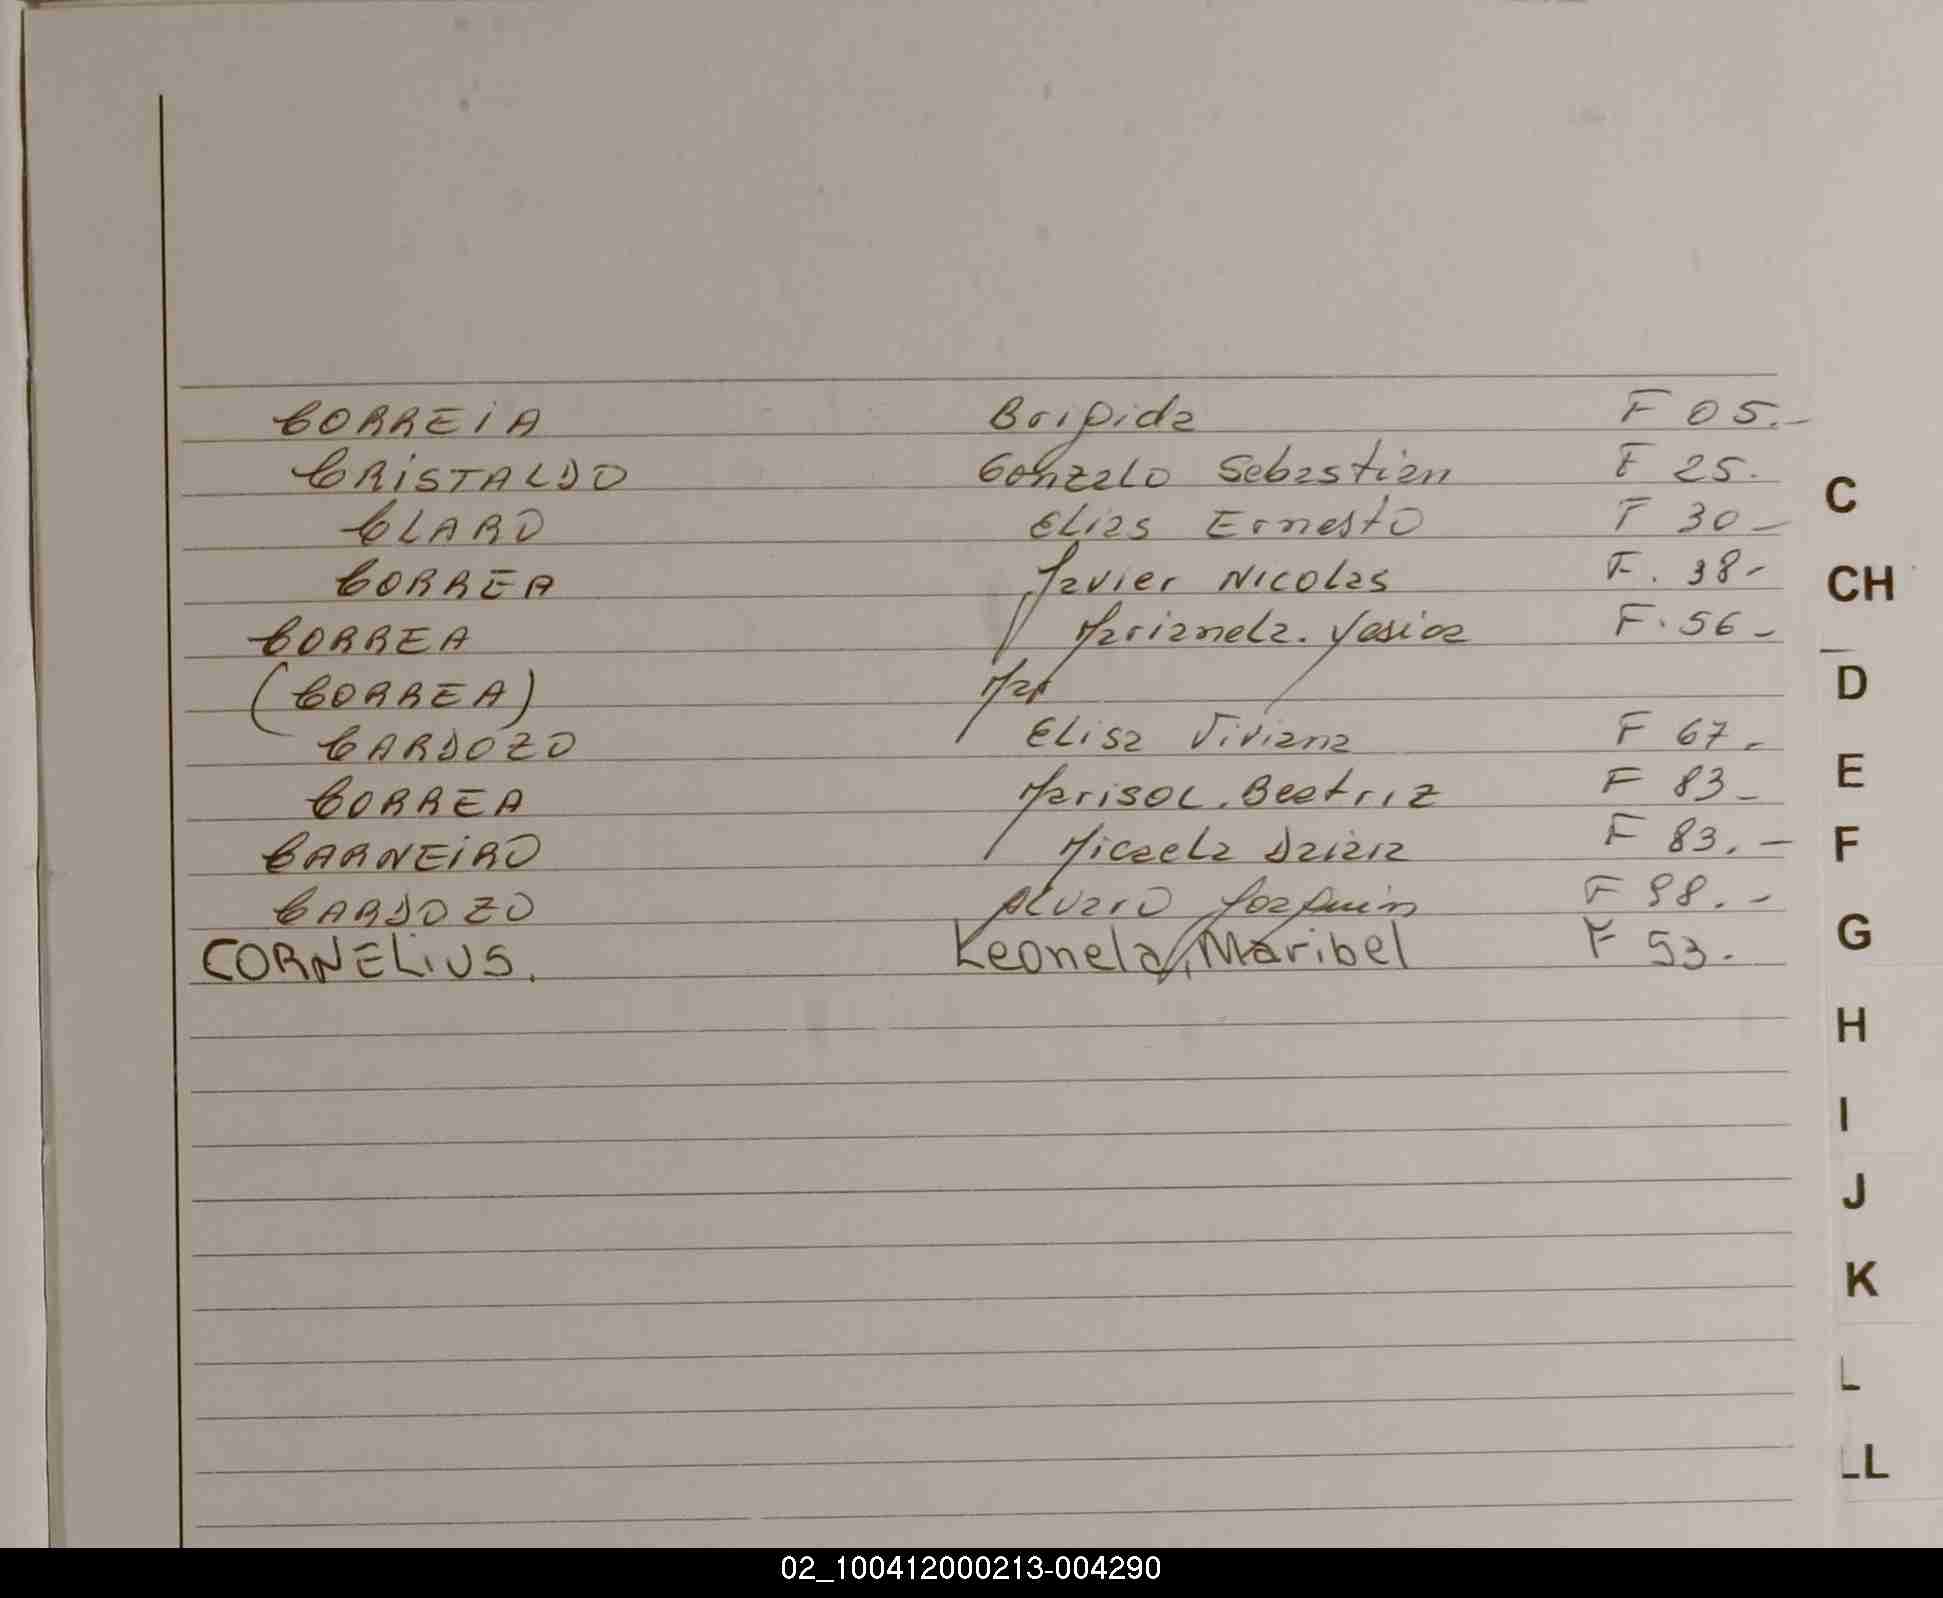 CORREIA Brigida F 05.-
CRISTALDO Gonzalo Sebastian F 25.
CLARO Elias Ernesto F 30-
CORREA Javier Nicolas F. 38-
CORREA Marianela. F. 56-
(CORREA) Mar
CARDOZO Elisa Viviana F 67-
CORREA Marisol. Beatriz F 83-
CARNEIRO Micaela F 83.-
CARDOZO Alvaro Joaquin F 98.-
CORNELIUS. Leonela, Maribel F 53.
C
CH
D
E
F
G
H
I
J
K
L
LL
02_100412000213-004290